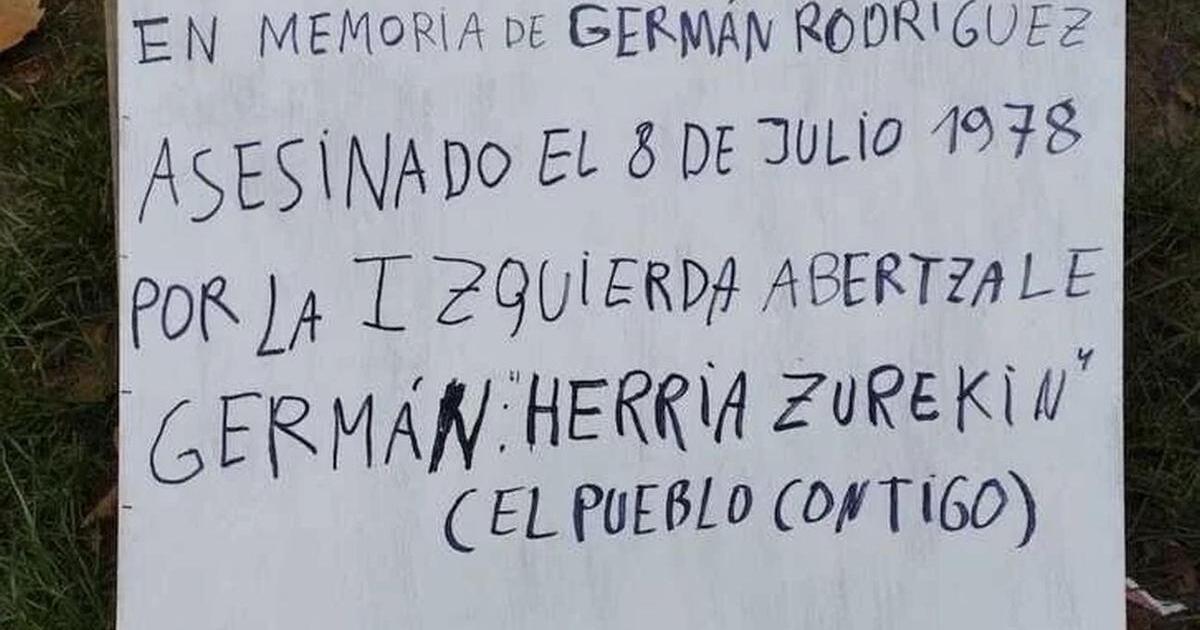 EN MEMORIA DE GERMÁN RODRIGUEZ
ASESINADO EL 8 DE JULIO 1978
POR LA IZQUIERDA ABERTZALE
GERMÁN: "HERRIA ZUREKIN"
(EL PUEBLO CONTIGO)